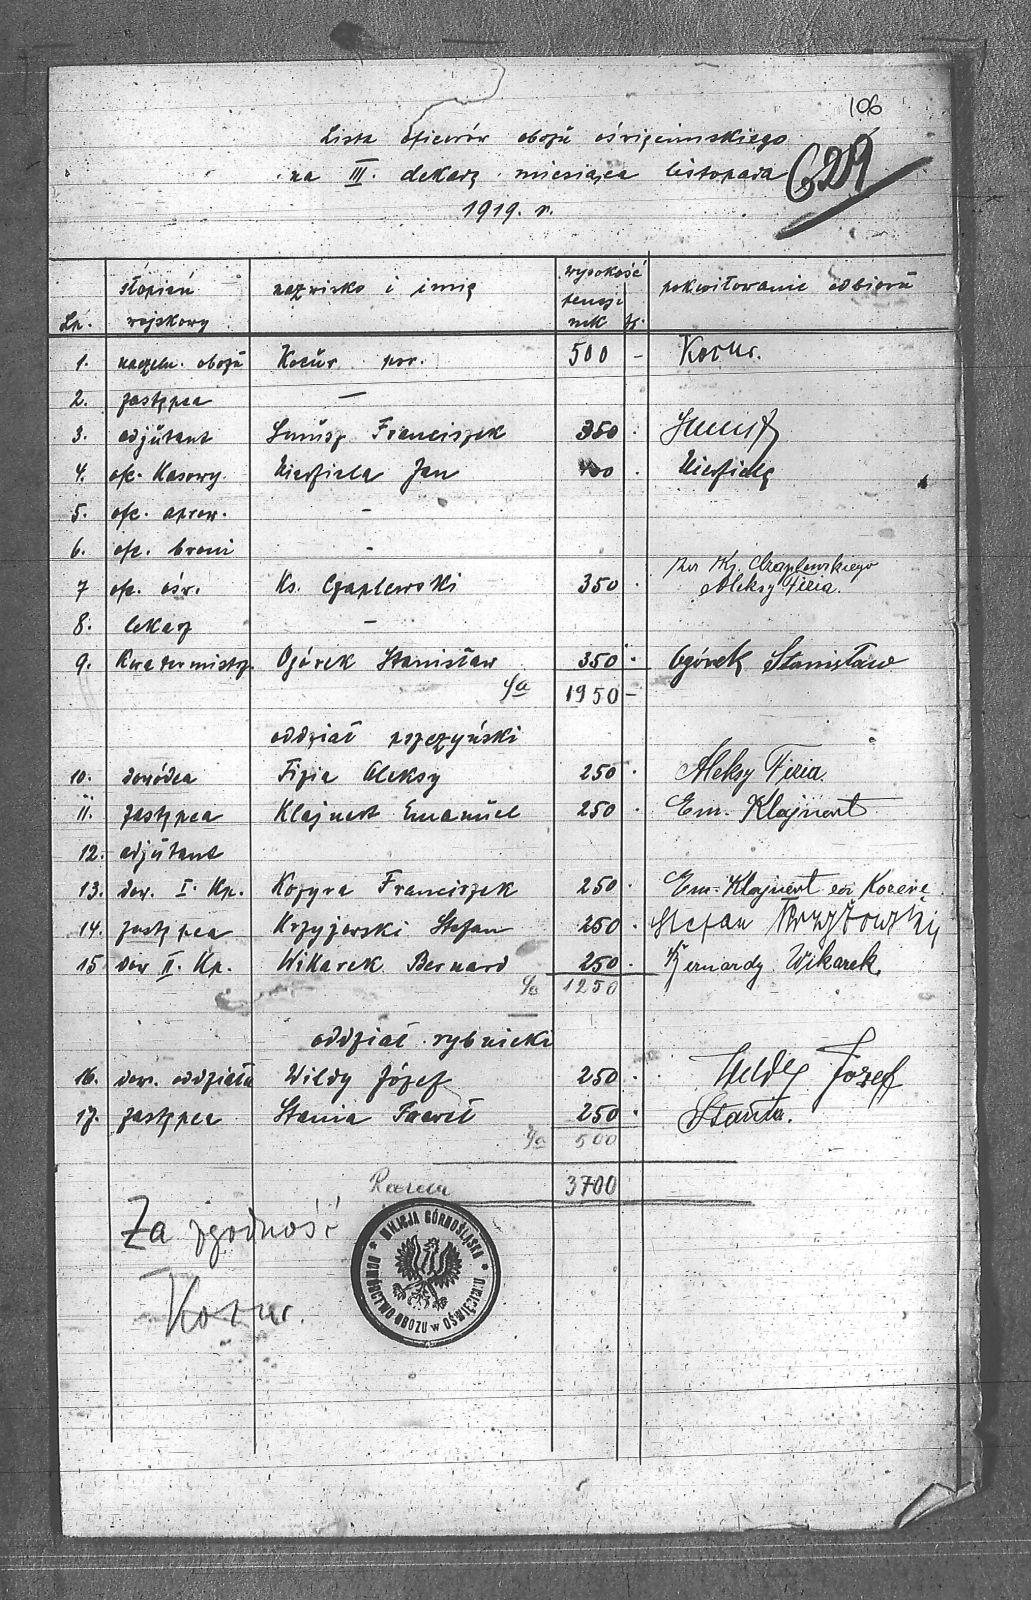 106
Lista oficerów obozu oświęcimskiego
na III. dekadę miesiąca listopada
1919. r.
629
Lp. stopień wojskowy nazwisko i imię wysokość pensji mk f. pokwitowanie odbioru
1. naczeln. obozu Kocur por. 500 – Kocur.
2. zastępca —
3. adjutant Smusz Franciszek 350 .
4. ofc. Kasowy. Niesfiela Jan 400 .
5. ofc. aprow. -
6. ofc. broni -
7 ofc. ośw. Ks. Czaplewski 350 . Ks. Czaplewskiego
Aleksy Fizia.
8. lekarz -
9. Kwatermistrz. Ogórek Stanisław 350 . Ogórek Stanisław
Sa 1950 –
oddział pszczyński
10. dowódca Fizia Aleksy 250 . Aleksy Fizia.
11. zastępca Klajnert Emanuel 250 . Em. Klajnert
12. adjutant
13. dow. I. Kp. Kozyra Franciszek 250 . Em. Klajnert
14. zastępca Krzyżowski Stefan 250 . Stefan Krzyżowski
15 dow II. Kp. Wikarek Bernard 250 . Bernard Wikarek.
Sa 1250
oddział rybnicki
16. dow. oddziału Wildy Józef 250 . Wildy Józef
17. zastępca Stania Paweł 250 . Stania.
Sa 500
Razem 3700
Za zgodność
Kocur.
MILICJA GÓRNOŚLĄSKA
DOWÓDCTWO OBOZU w OŚWIĘCIMIU